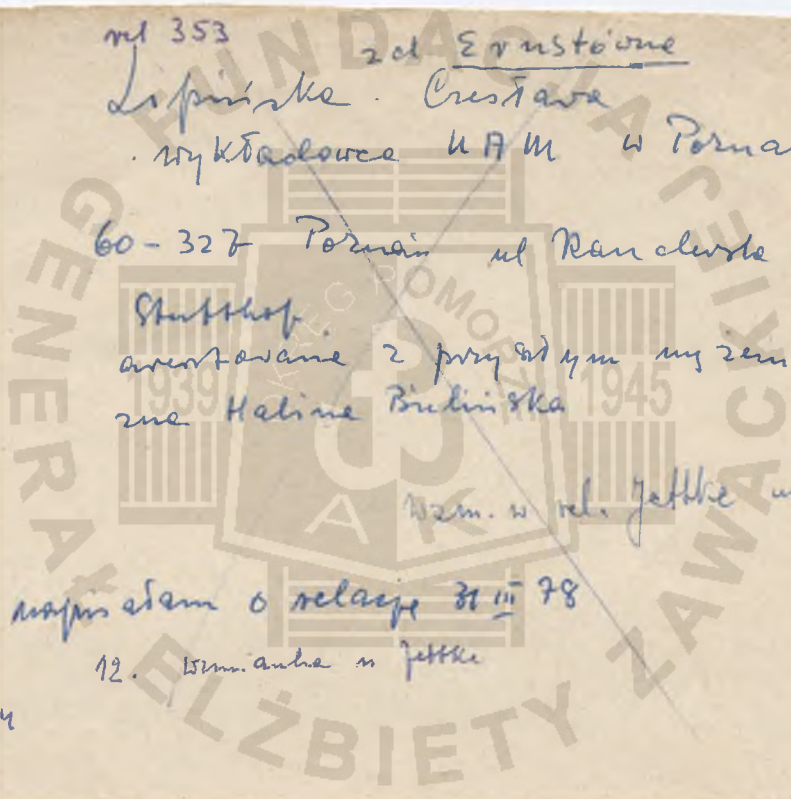 rel 353
zd Ernstówna
Lipińska. Czesława
. wykładowca UAM w Pozna
60-327 Poznań ul
Stutthof.
aresztowana z przyszłym mężem
zna Halina Bielińska
Wzm. w rel. Jettke
napisałam o relację 31 III 78
12. Wzmianka u Jettke
FUNDACJA GENERAŁ ELŻBIETY ZAWACKIEJ
OKRĘG POMORZE
1939 1945
AK